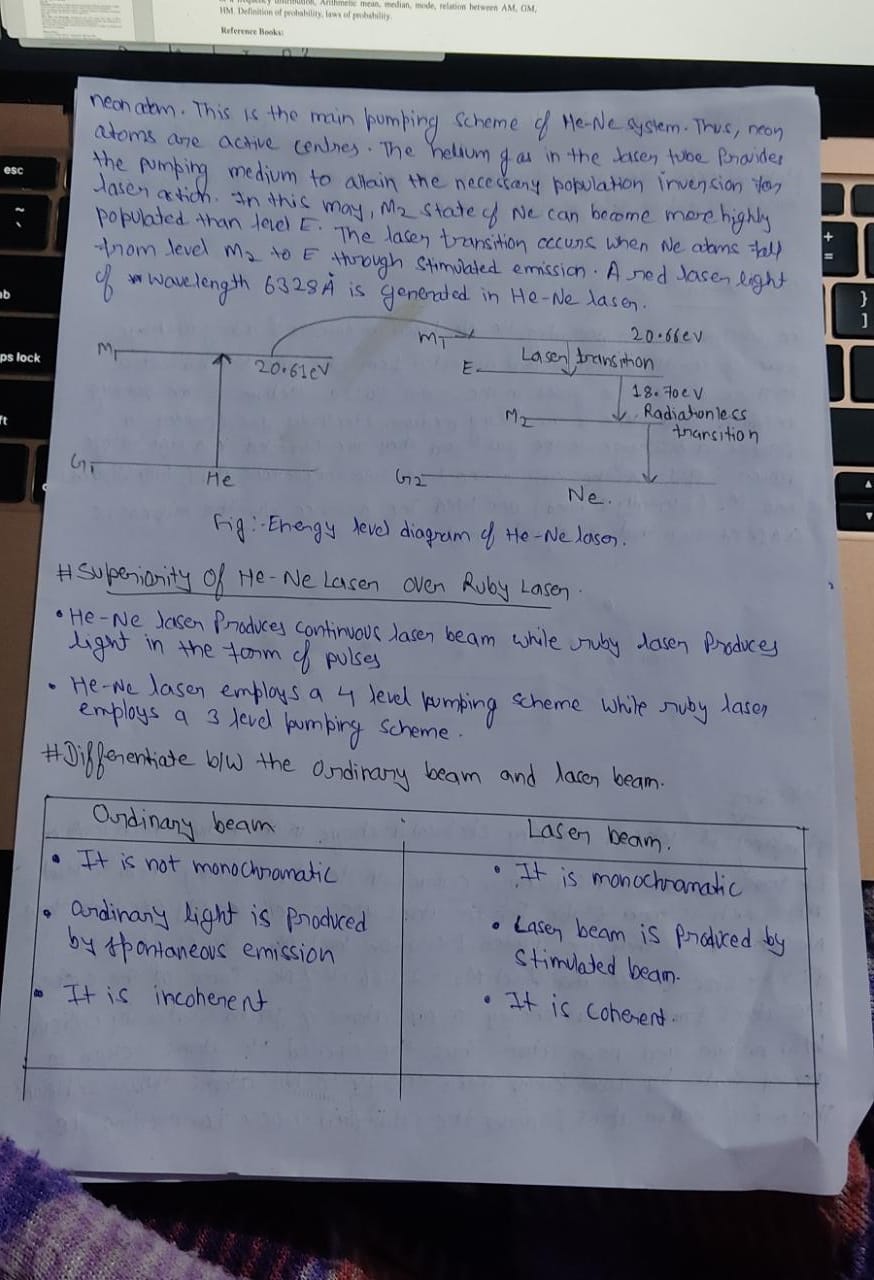 Arithmetic mean, median, mode, relation between AM, GM,
HM. Definition of probability, laws of probability.
Reference Books:
esc
~
ab
ps lock
ft
+
=
}
]
neon atom. This is the main pumping scheme of He-Ne system. Thus, neon
atoms are active centres. The helium gas in the laser tube Provides
the pumping medium to attain the necessary population inversion for
laser action. In this may, M2 state of Ne can become more highly
populated than level E. The laser transition occurs when Ne atoms fall
from level M2 to E through stimulated emission. A red laser light
of wavelength 6328Å is generated in He-Ne laser.
M1
20.61eV
G1
He
M1
20.66eV
E
Laser transition
18.70eV
M2
Radiationless
transition
G2
Ne.
Fig:-Energy level diagram of He-Ne laser.
#Superiority Of He-Ne Laser over Ruby Laser.
• He-Ne laser Produces continuous laser beam while ruby laser Produces
light in the form of pulses
• He-Ne laser employs a 4 level pumping scheme while ruby laser
employs a 3 level pumping scheme.
#Differentiate b/w the ordinary beam and laser beam.
Ordinary beam
Laser beam.
• It is not monochromatic
• It is monochramatic
• ordinary light is Produced
by spontaneous emission
• Laser beam is Produced by
stimulated beam.
• It is incoherent
• It is coherent.